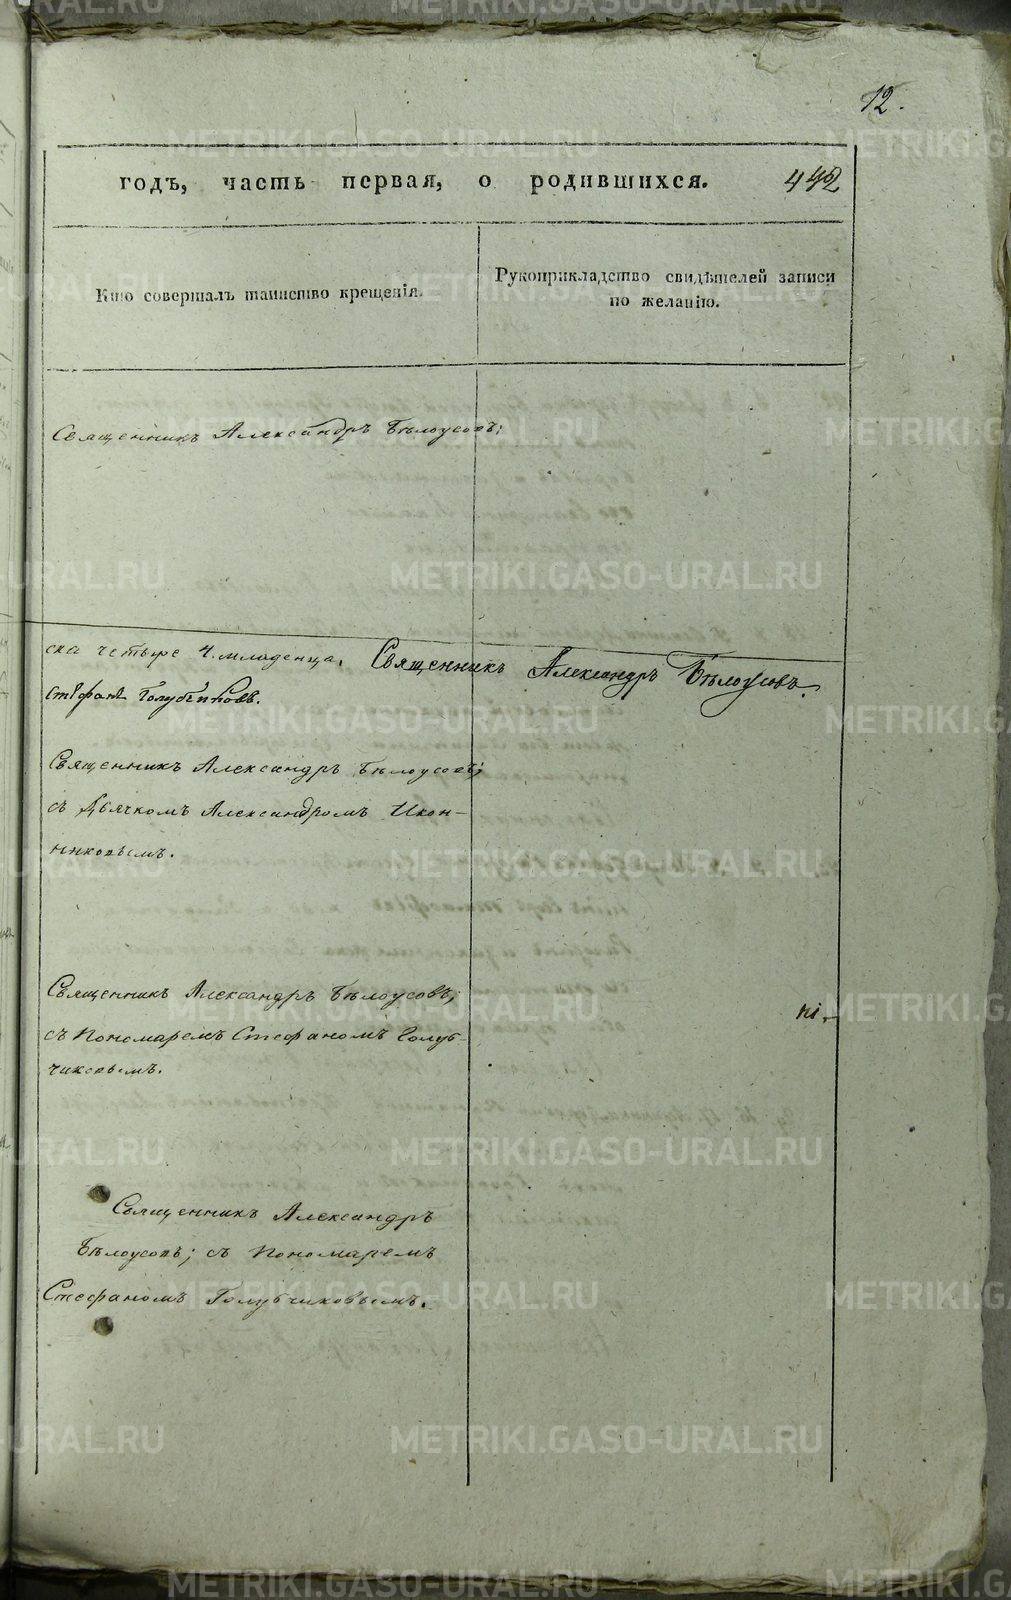 12.
годъ, часть первая, о родившихся. 442
Кто совершалъ таинство крещенія.
Рукоприкладство свидѣтелей записи
по желанію.
Священникъ Александръ Бѣлоусовъ;
ска четыре 4. младенца. Священникъ Александръ Бѣлоусовъ.
Священникъ Александръ Бѣлоусовъ;
съ Дьячкомъ Александромъ Икон-
никовымъ.
Священникъ Александръ Бѣлоусовъ;
съ Пономаремъ Стефаномъ Голуб-
чиковымъ.
Священникъ Александръ
Бѣлоусовъ; съ Пономаремъ
Стефаномъ Голубчиковымъ.
METRIKI.GASO-URAL.RU